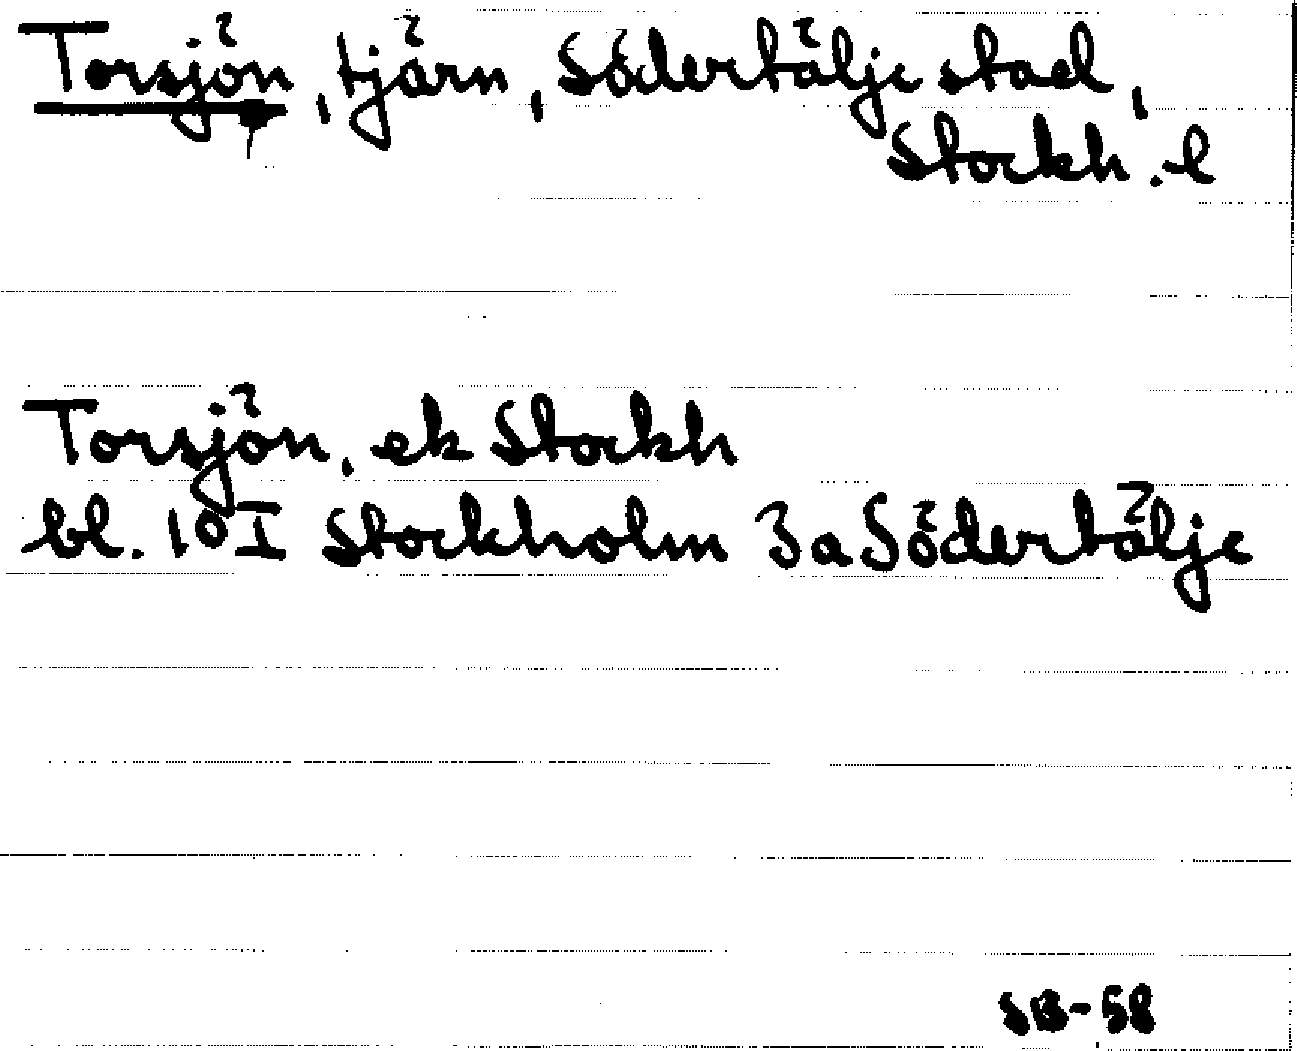 Torsjön, tjärn, Södertälje stad,
Stockh. l
Torsjön, ek Stockh
bl. 10 I Stockholm 3a Södertälje
SB-58